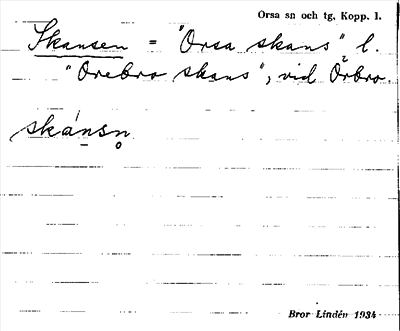 Orsa sn och tg, Kopp. l.
Skansen = "Orsa skans" l.
"Örebro skans", vid Örbro.
skánsn̥
Bror Lindén 1934